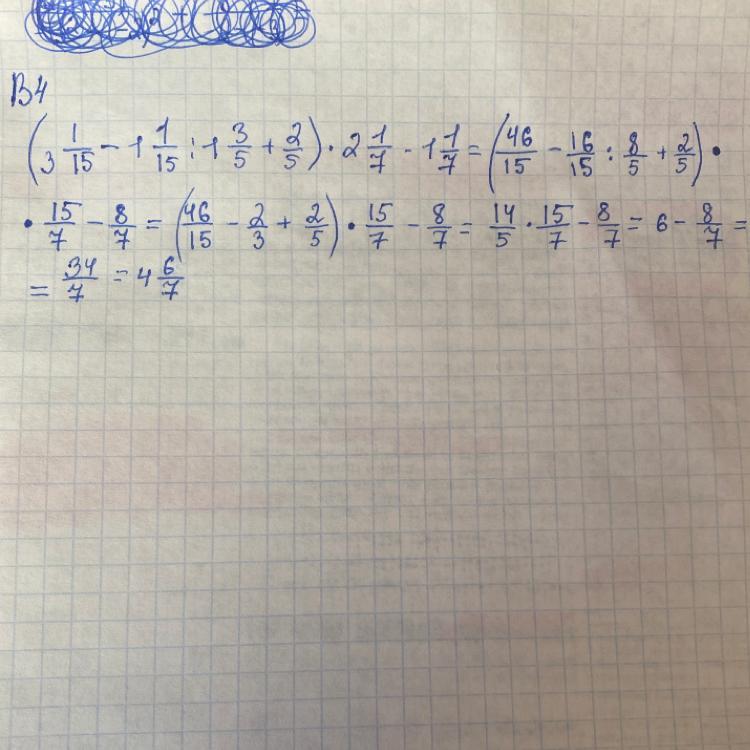 В4
(3 1/15 - 1 1/15 : 1 3/5 + 2/5) · 2 1/7 - 1 1/7 = (46/15 - 16/15 : 8/5 + 2/5) ·
· 15/7 - 8/7 = (46/15 - 2/3 + 2/5) · 15/7 - 8/7 = 14/5 · 15/7 - 8/7 = 6 - 8/7 =
= 34/7 = 4 6/7